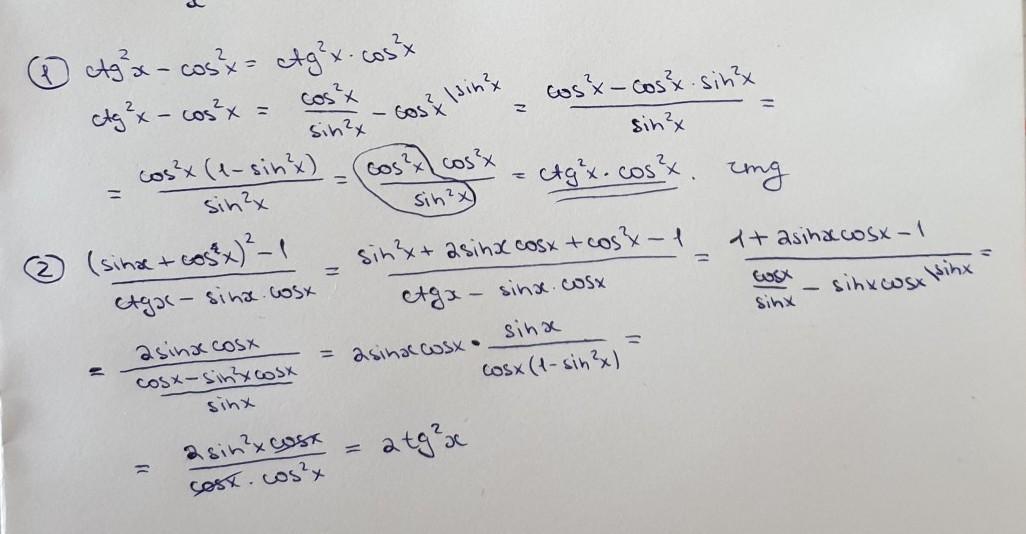 ① ctg²x − cos²x = ctg²x · cos²x
ctg²x − cos²x = cos²x / sin²x − cos²x \sin²x = (cos²x − cos²x · sin²x) / sin²x =
= cos²x (1 − sin²x) / sin²x = cos²x cos²x / sin²x = ctg²x · cos²x.
② ((sinx + cosx)² − 1) / (ctgx − sinx · cosx) = (sin²x + 2sinx cosx + cos²x − 1) / (ctgx − sinx · cosx) = (1 + 2sinx cosx − 1) / (cosx / sinx − sinx cosx \sinx) =
= 2sinx cosx / ((cosx − sin²x cosx) / sinx) = 2sinx cosx · sinx / (cosx (1 − sin²x)) =
= 2sin²x cosx / (cosx · cos²x) = 2tg²x